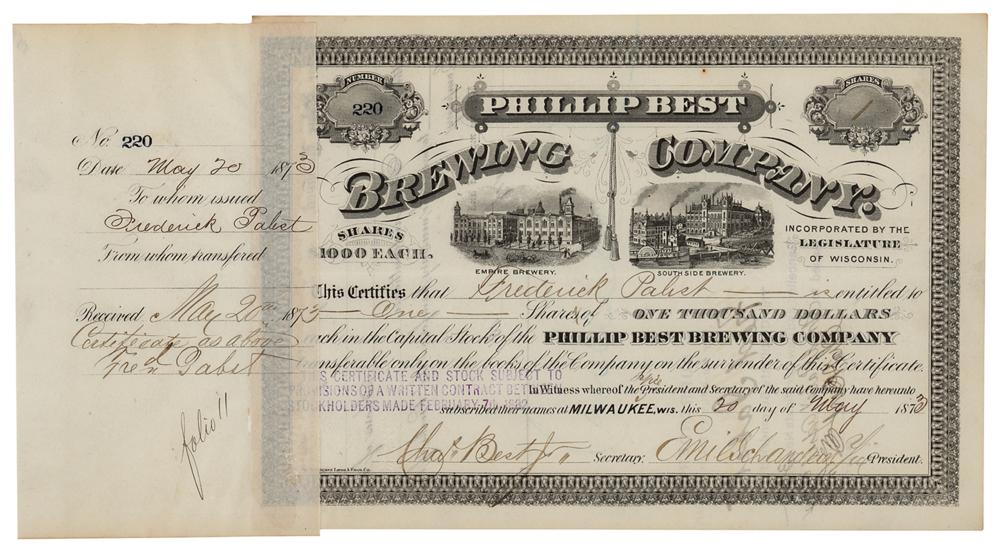 No. 220
Date May 20 1873
To whom issued
Frederick Pabst
From whom transfered
Received May 20th 1873
Certificate as above
Fred Pabst
folio 11
NUMBER
220
SHARES
1
PHILLIP BEST
BREWING COMPANY.
SHARES
1000 EACH.
EMPIRE BREWERY.
SOUTH SIDE BREWERY.
INCORPORATED BY THE
LEGISLATURE
OF WISCONSIN.
This Certifies that Frederick Pabst is entitled to
One Shares of ONE THOUSAND DOLLARS
each in the Capital Stock of the PHILLIP BEST BREWING COMPANY
transferable only on the books of the Company on the surrender of this Certificate.
S CERTIFICATE AND STOCK SUBJECT TO
VISIONS OF A WRITTEN CONTRACT BETWE
STOCKHOLDERS MADE FEBRUARY 7th
In Witness whereof the President and Secretary of the said Company have hereunto
subscribed their names at MILWAUKEE, WIS. this 20 day of May 1873
Chas. Best Jr. Secretary. Emil Schandein President.